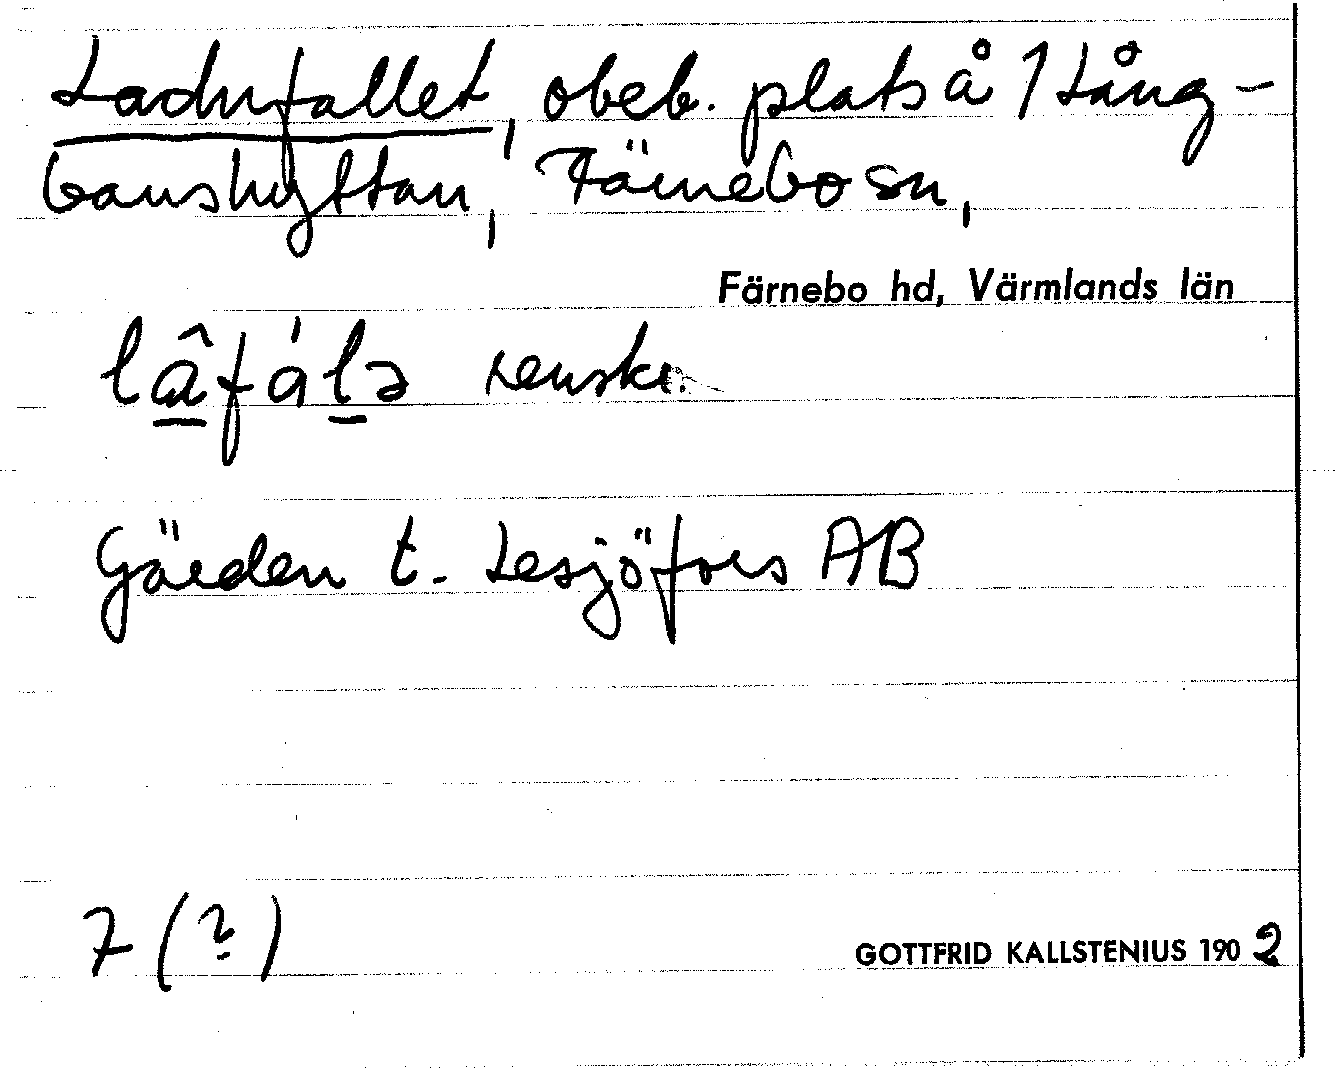 Ladufallet, obeb. plats å 1 Lång-
banshyttan, Färnebo sn,
Färnebo hd, Värmlands län
lâfálə
Gården t. Lesjöfors AB
7 (?)
GOTTFRID KALLSTENIUS 1902